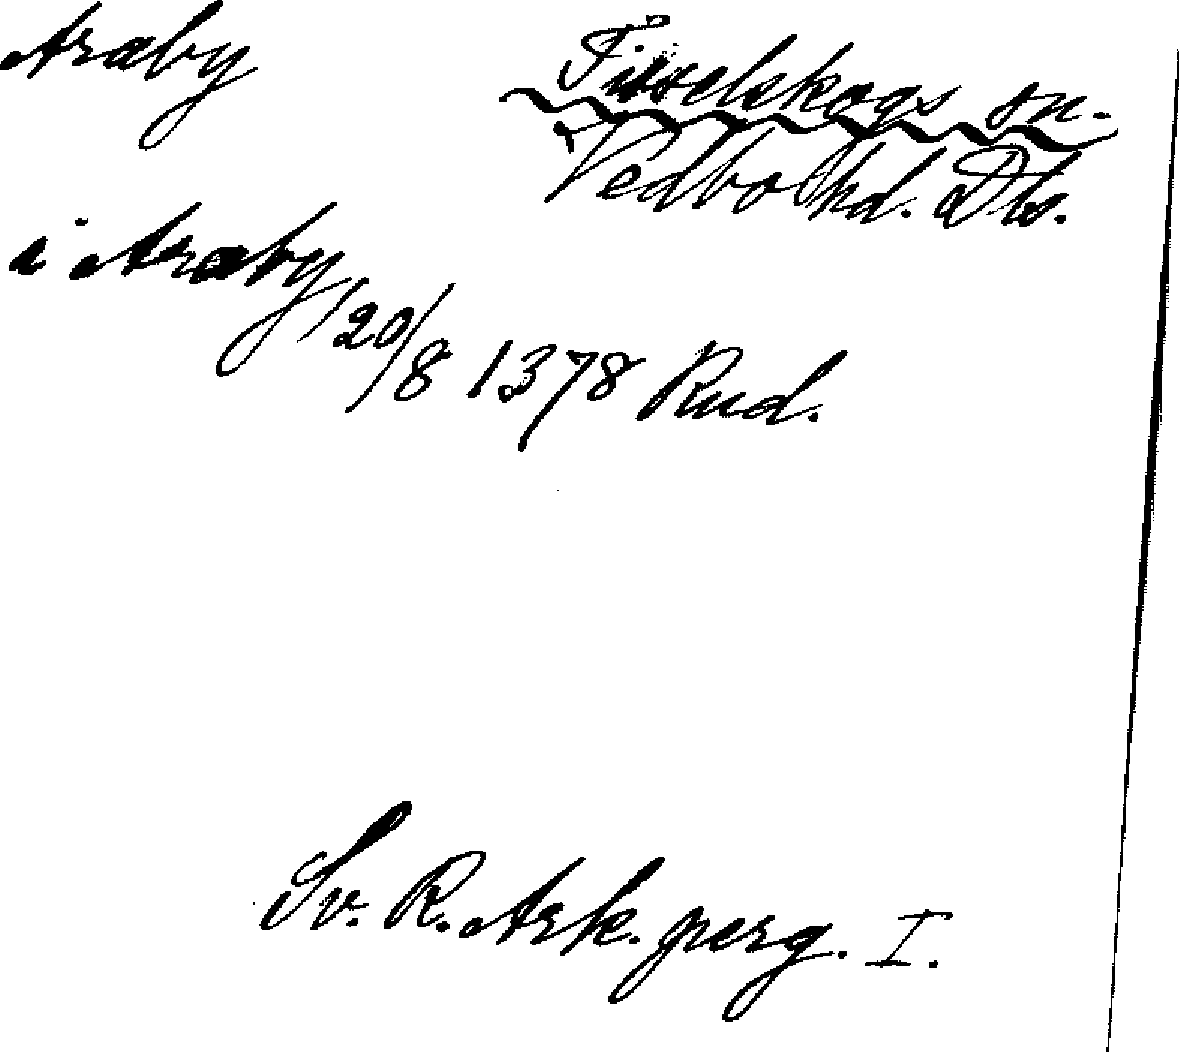 Araby
Tisselskogs sn.
Vedbo hd. Dls.
i Araby, 20/8 1378 Rud.
Sv. R. Ark. perg. I.